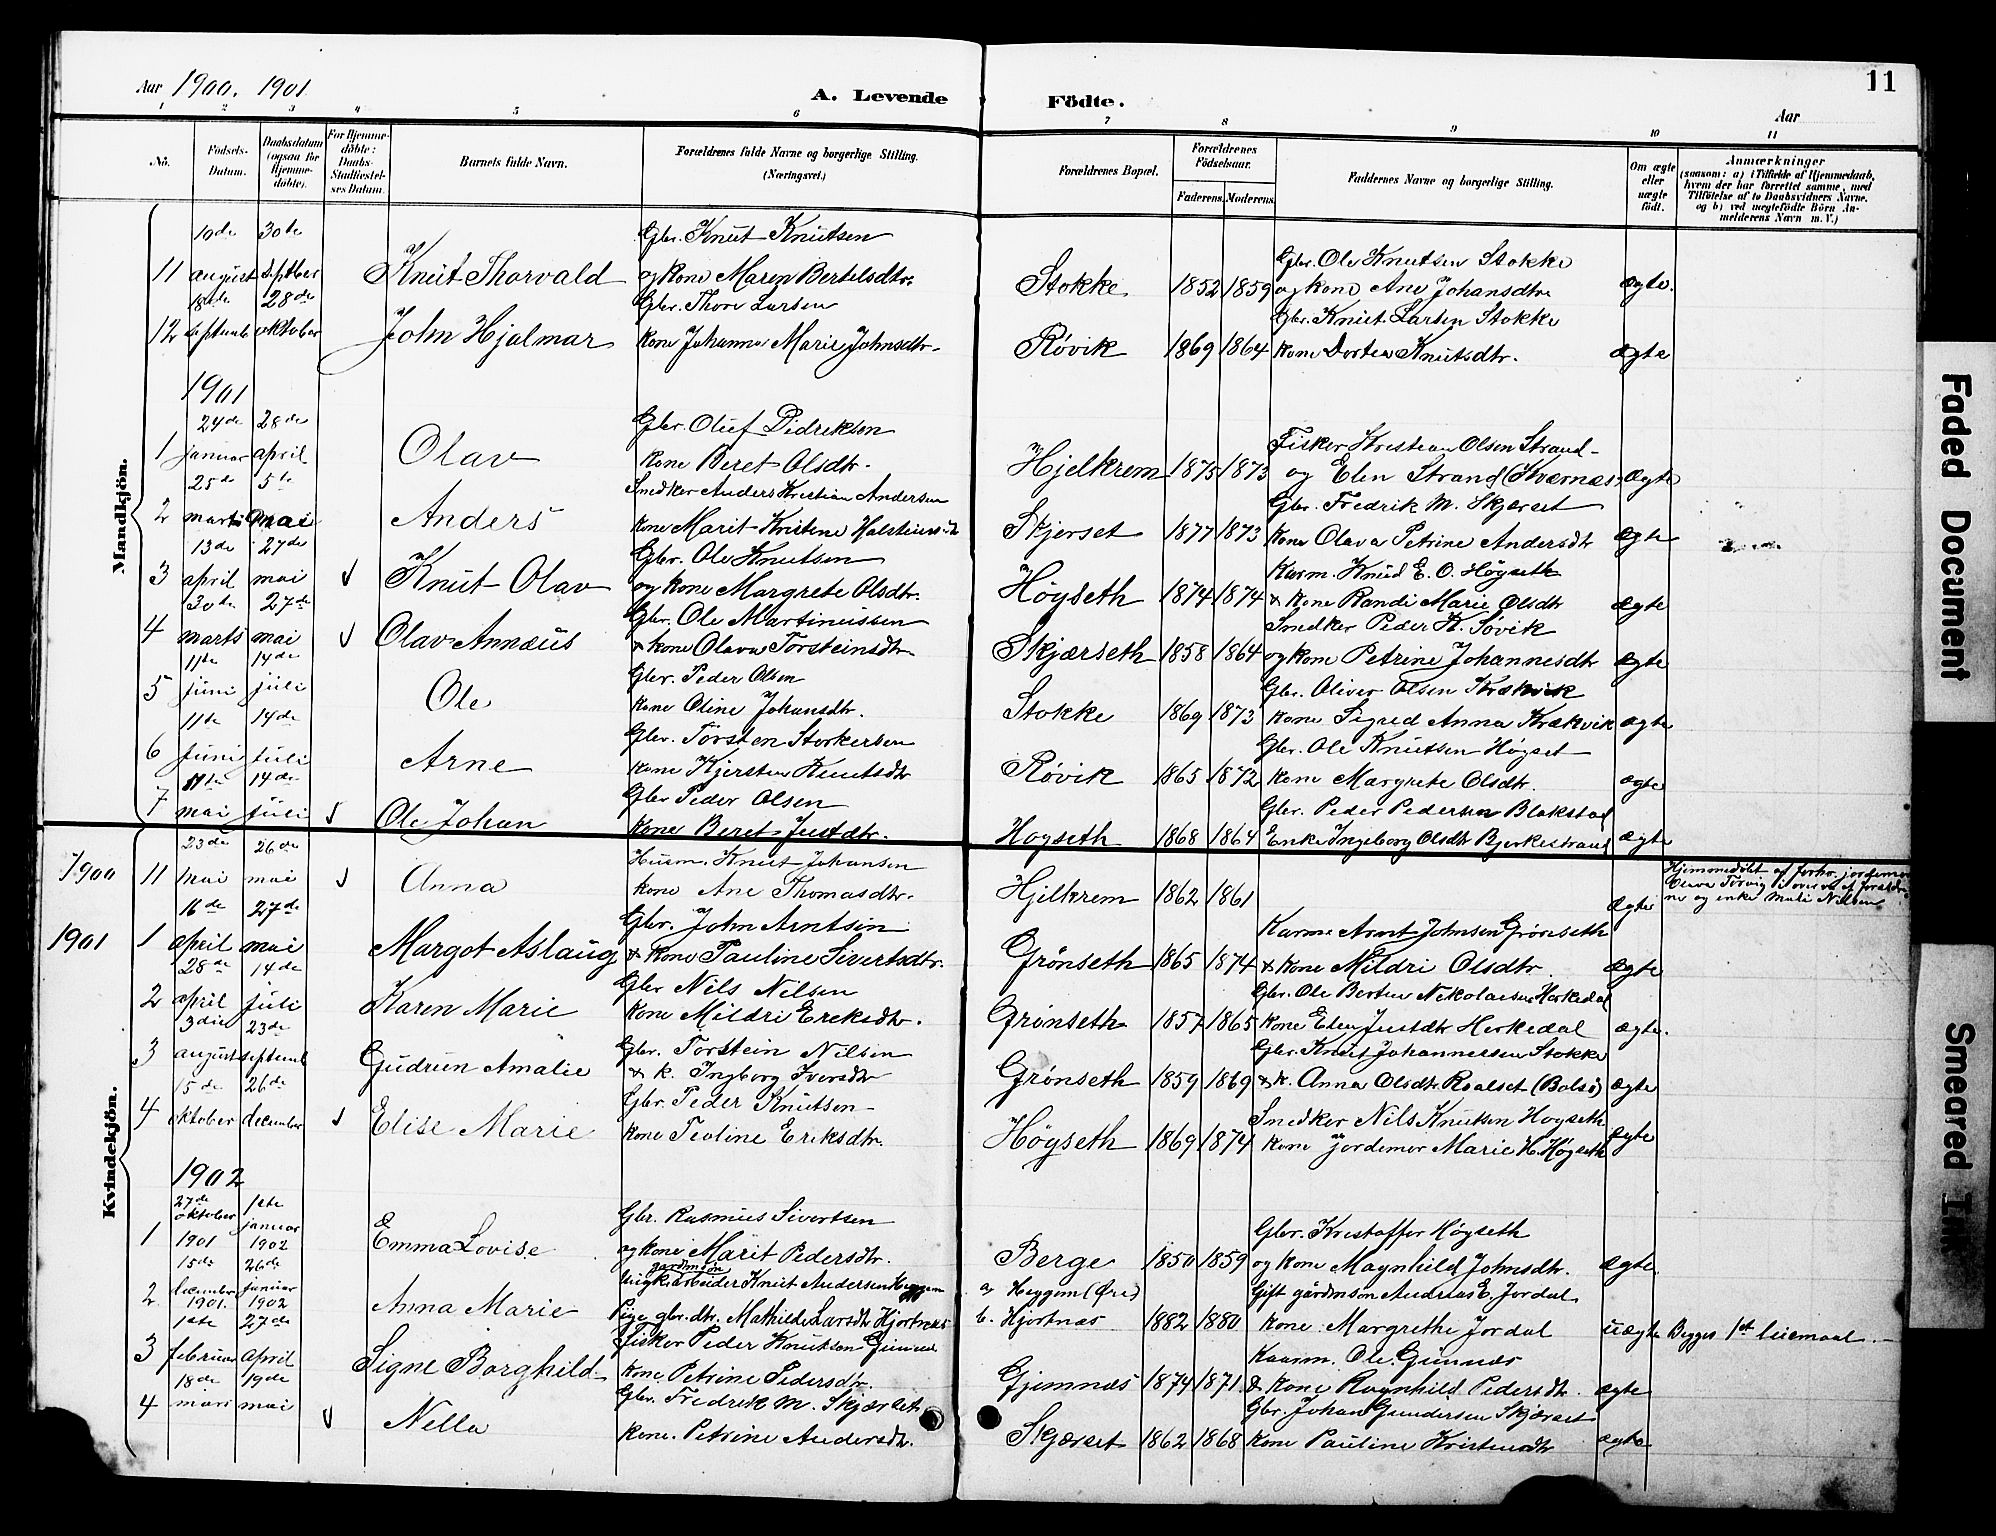 Aar 1900. 1901
A. Levende Födte.
Aar
11
1 2 3 4 5 6 7 8 9 10 11
No.
Födsels-Datum.
Daabsdatum (ogsaa for Hjemme-döbte).
For Hjemme-döbte: Daabs-Stadfæstel-ses Datum.
Barnets fulde Navn.
Forældrenes fulde Navne og borgerlige Stilling. (Næringsvei.)
Forældrenes Bopæl.
Forældrenes Födselsaar.
Faderens. Moderens.
Faddernes Navne og borgerlige Stilling.
Om ægte eller uægte födt.
Anmærkninger
(saasom: a) i Tilfælde af Hjemmedaab, hvem der har forrettet samme, med Tilföielse af to Daabsvidners Navne. og b) ved uægtefödte Börn An-melderens Navn m. V.)
Mandkjön.
10de 30te Gbr. Knut Knutsen Gbr. Ole Knutsen Stokke
11 august septber Knut Thorvald og kone Maren Bertelsdtr. Stokke 1852 1859 og kone Ane Johansdtr. ægte.
18de 28de Gbr. Thore Larsen Gbr. Knut Larsen Stokke
12 septemb oktober John Hjalmar kone Johanna Marie Johnsdtr. Røvik 1869 1864 kone Dortea Knutsdtr. ægte
1901
24de 28de Gbr. Oluf Didriksen Fisker Kristian Olsen Strand
1 januar april Olav kone Beret Olsdtr. Hjelkrem 1875 1873 og Elen Strand (Kvernæs) ægte
25de 5te Snedker Anders Kristian Andersen Gbr. Fredrik M. Skjærset
2 marts mai Anders kone Marit Kristine Halsteinsdt Skjerset 1877 1873 kone Olava Petrine Andersdtr ægte
13de 27de Gbr. Ole Knutsen Kaarm. Knud E. O. Høgseth
3 april mai √ Knut Olav og kone Margrete Olsdtr. Høgseth 1874 1874 & kone Randi Marie Olsdtr ægte
30te 27de Gbr. Ole Martinussen Snedker Peder K. Søvik
4 marts mai √ Olav Annæus & kone Olava Torsteinsdtr Skjærseth 1858 1864 og kone Petrine Johannesdtr ægte
11te 14de Gbr. Peder Olsen Gbr. Oliver Olsen Krækvik
5 juni juli Ole kone Oline Johansdtr. Stokke 1869 1873 kone Sigrid Anna Krækvik ægte
11te 14de Gbr. Torsten Storkersen Gbr. Ole Knutsen Høgset
6 Juni Juli Arne kone Kjersten Knutsdtr Røvik 1865 1872 kone Margrete Olsdtr. ægte
11te 14de Gbr Peder Olsen Gbr. Peder Pedersen Blakstad
7 mai Juli √ Ole Johan kone Beret Justdtr. Hogseth 1868 1864 Enke Ingeborg Olsdtr Bjerkestrand ægte
Kvindekjön.
23de 26de Husm. Knut Johansen Hjemmedøbt af forhv. jordemor
1900 11 mai mai √ Anna kone Ane Thomasdtr. Hjelkrem 1862 1861 ægte Olava Torvig i overv. af forældre
ne og enke Mali Nilsen
16de 27de Gbr. John Arntsen Karm. Arnt Johnsen Grønseth
1901 1 april mai Margot Aslaug & kone Pauline Sivertsdtr. Grønseth 1865 1874 & kone Mildri Olsdtr. ægte
28de 14de Gbr Nils Nilsen Gbr. Ole Berten Nikolaisen Horkedal
2 april juli Karen Marie kone Mildri Ereksdtr. Grønseth 1857 1865 kone Elen Justdtr Horkedal ægte.
3die 23de Gbr. Torstein Nilsen Gbr. Knut Johannessen Stokke
3 august septemb Gudrun Amalie & k. Ingborg Iversdtr Grønseth 1859 1869 & k. Anna Olsdtr. Roalset (Bolsø) ægte
15de 26de Gbr. Peder Knutsen Snedker Nils Knutsen Hogseth
4 oktober december √ Elise Marie kone Pauline Eriksdtr. Høgseth 1869 1874 kone jordemor Marie K. Høgseth ægte
1902
27de oktober 1ste januar Gbr. Rasmus Sivertsen Gbr. Kristoffer Høgseth
1 1901 1902 Emma Lovise og kone Marit Pedersdtr. Berge 1850 1859 og kone Magnhild Johnsdtr. ægte.
15de 26de gardmsøn
december januar Ungk. arbeider Knut Andersen Heggem a, Heggem (Øre) Gift gårdmsøn Andreas E. Jordal
2 1901. 1902 Anna Marie Pige gbr.dtr. Mathilde Larsdtr Hjortnæs b. Hjortnæs 1882 1880 kone Margrethe Jordal uægte Begges 1st leiemaal.
1ste 27de Fisker Peder Knutsen Gimnæs Kaarm. Ole Gimnæs
3 februar april Signe Borghild kone Petrine Pedersdtr. Gjimnæs 1874 1871 & kone Ragnhild Pedersdtr. ægte
18de 19de Gbr. Fredrik M. Skjærset Gbr. Johan Gundersen Skjærset
4 mars mai √ Nella kone. Petrine Andersdtr. Skjærset 1862 1868 kone Pauline Kristensdtr ægte
Faded Document
Smeared Ink